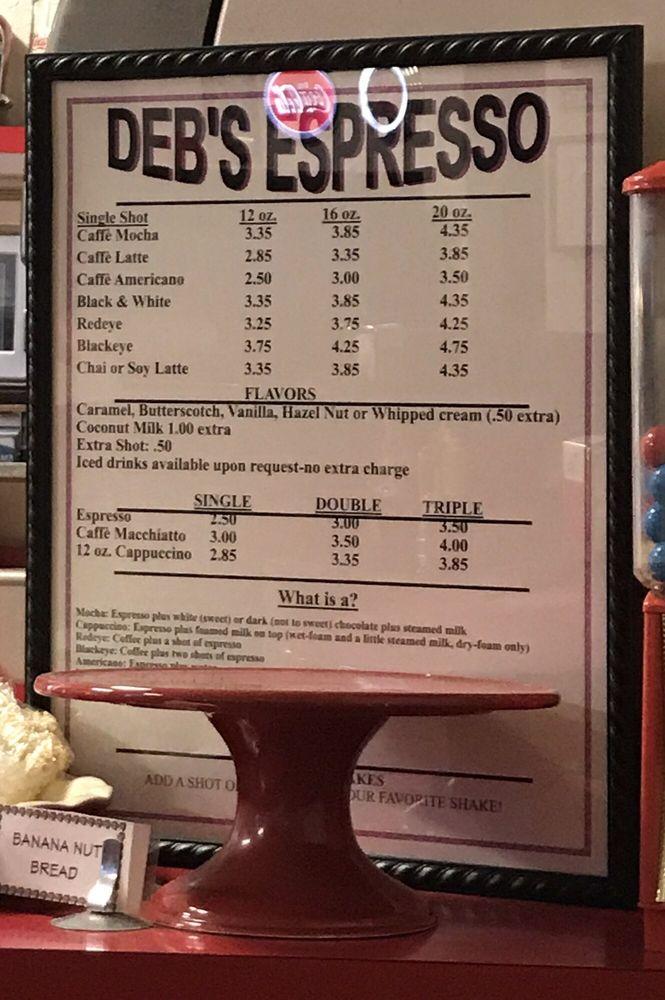 DEB'S ESPRESSO
Single Shot 12 oz. 16 oz. 20 oz.
Caffè Mocha 3.35 3.85 4.35
Caffè Latte 2.85 3.35 3.85
Caffè Americano 2.50 3.00 3.50
Black & White 3.35 3.85 4.35
Redeye 3.25 3.75 4.25
Blackeye 3.75 4.25 4.75
Chai or Soy Latte 3.35 3.85 4.35
FLAVORS
Caramel, Butterscotch, Vanilla, Hazel Nut or Whipped cream (.50 extra)
Coconut Milk 1.00 extra
Extra Shot: .50
Iced drinks available upon request-no extra charge
SINGLE DOUBLE TRIPLE
Espresso 2.50 3.00 3.50
Caffè Macchiatto 3.00 3.50 4.00
12 oz. Cappuccino 2.85 3.35 3.85
What is a?
Mocha: Espresso plus white (sweet) or dark (not to sweet) chocolate plus steamed milk
Cappuccino: Espresso plus foamed milk on top (wet-foam and a little steamed milk, dry-foam only)
Redeye: Coffee plus a shot of espresso
Blackeye: Coffee plus two shots of espresso
Americano: Espresso plus water
KES
ADD A SHOT O OUR FAVORITE SHAKE!
BANANA NUT
BREAD